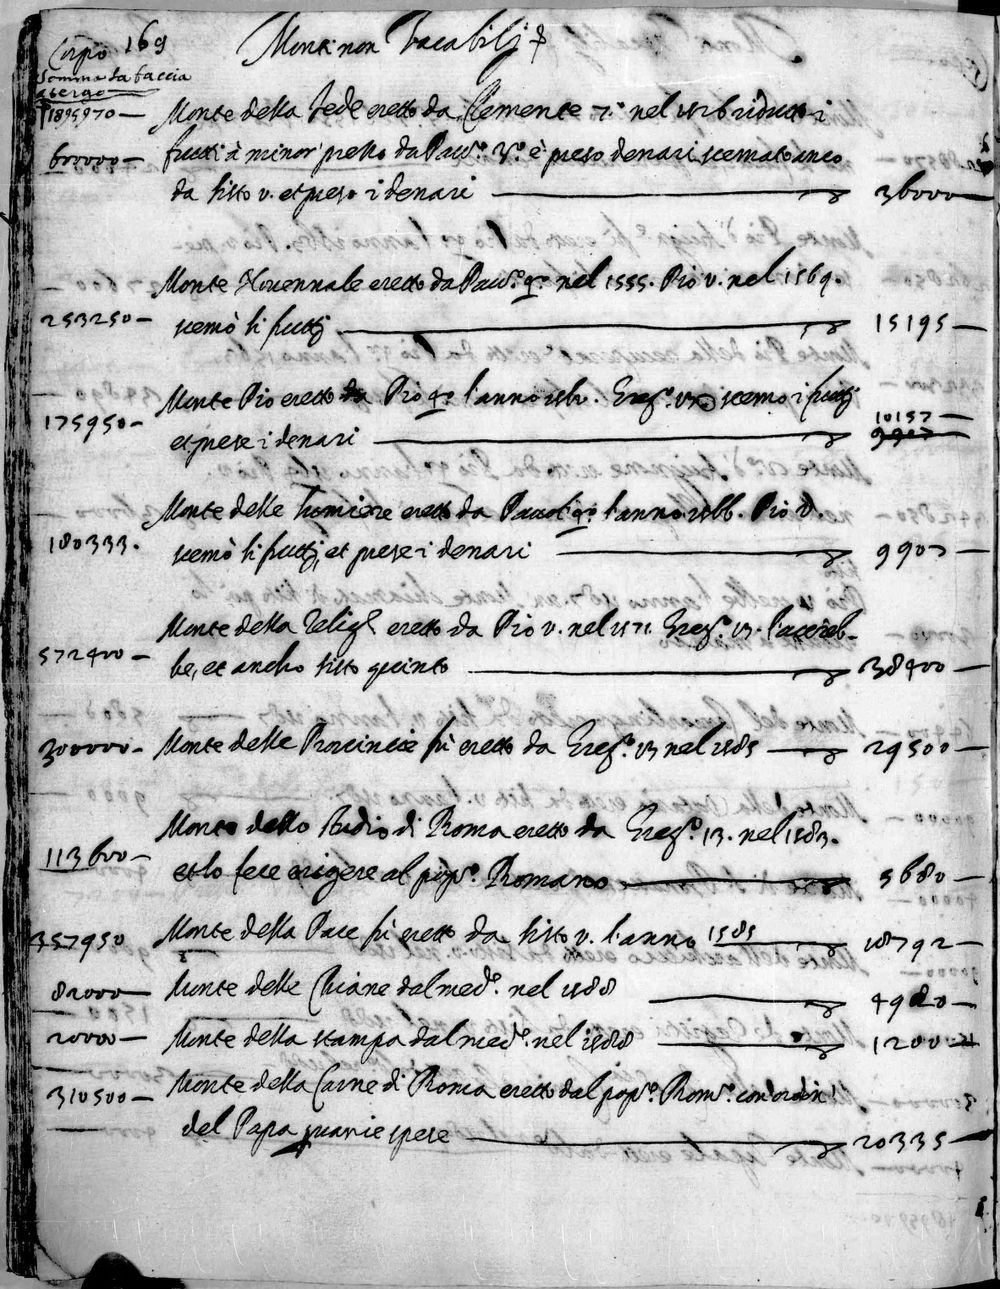 Corpo 169 Monti non Vacabilj
Somma la faccia
a tergo
1895970 — Monte della fede eretto da Clemente 7.º nel 1526 ridutto i
600000 — frutti à minor prezzo da Pau.º 3.º è preso denari scemato anco
da Sisto v. et preso i denari 36000 —
Monte Novennale eretto da Pau.º 4.º nel 1555. Pio v. nel 1569.
253250 — scemò li frutti 15195 —
Monte Pio eretto da Pio 4.º l'anno 1560. Greg.º 13 scemo i frutti
175950 — et prese i denari 10157 —
9907
Monte delle lumiere eretto da Pauolo 4.º l'anno 1566. Pio V.
180333. scemò li frutti, et prese i denari 9907 —
Monte della Relig.e eretto da Pio v. nel 1571. Greg.º 13. l'accreb-
572400 — be, et ancho sisto quinto 38400 —
300000 — Monte delle Provincie fù eretto da Greg.º 13 nel 1585 29500 —
Monte dello studio di Roma eretto da Greg.º 13. nel 1583.
113600 — et lo fece erigere al pop.º Romano 5680 —
357950 Monte della Pace fù eretto da sisto v. l'anno 1585 18792 —
82000 — Monte delle Chiane dal med.º nel 1588 4920 —
20000 — Monte della stampa dal med.º nel 1588 1200 —
310500 — Monte della Carne di Roma eretto dal pop.º Rom.º con ordin
del Papa spese 20335 —